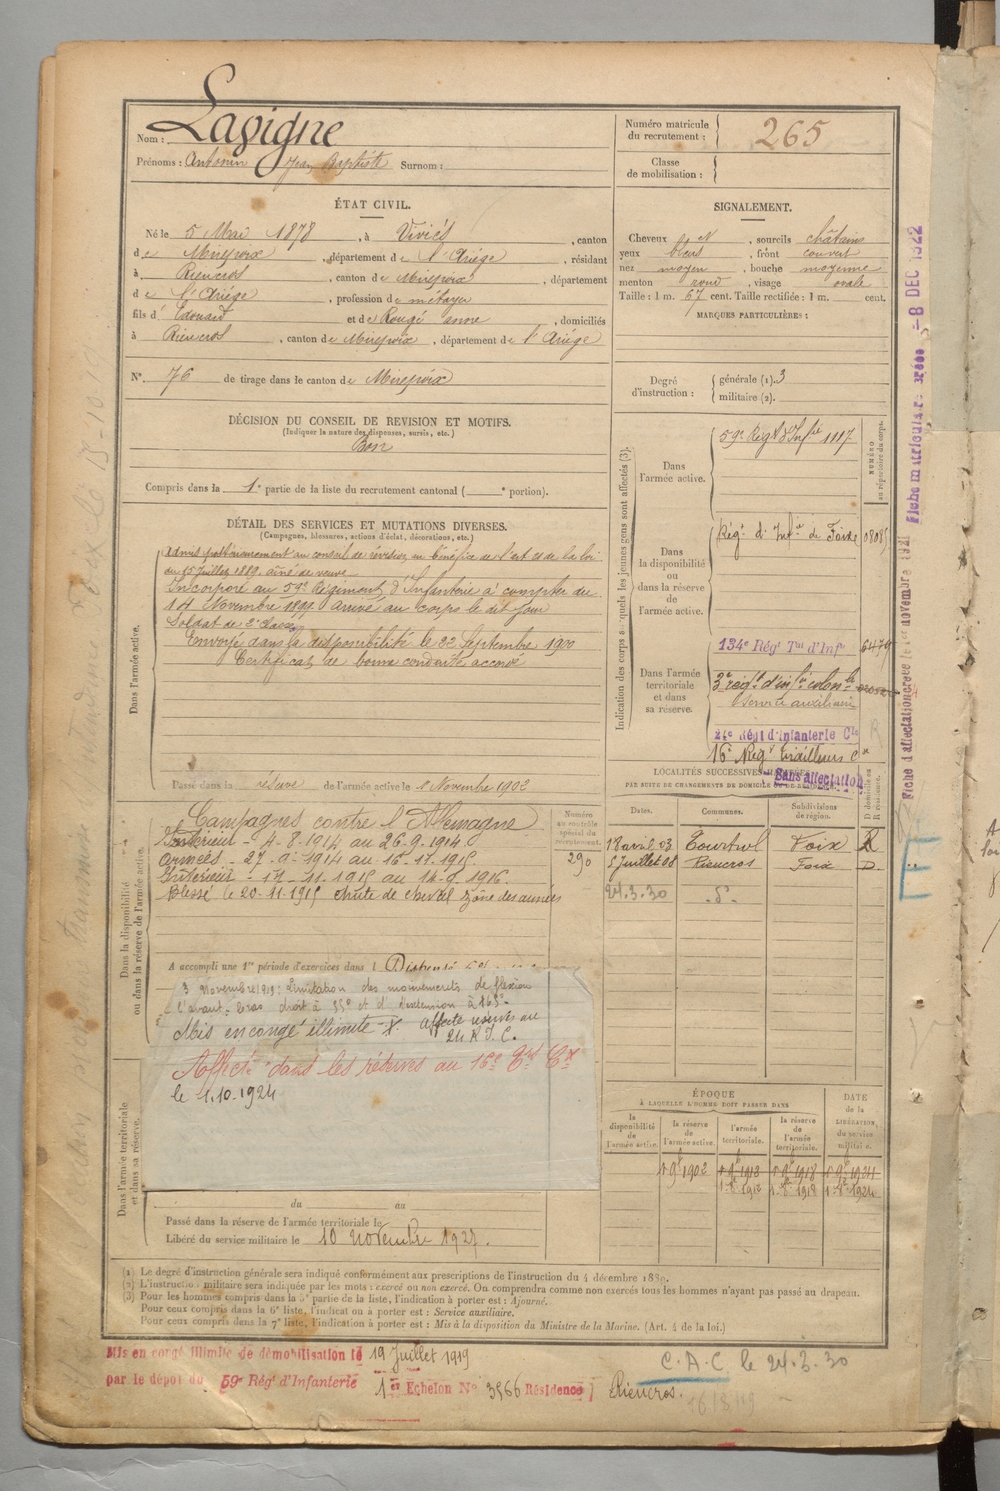 Nom : Lavigne
Prénoms : Antonin Jean Baptiste Surnom :
Numéro matricule du recrutement : 265
Classe de mobilisation :
ÉTAT CIVIL.
Né le 5 Mai 1878, à Viviès, canton
de Mirepoix, département de l'Ariège, résidant
à Rieucros, canton de Mirepoix, département
de l'Ariège, profession de métayer
fils d' Edouard et de Rougé anne, domiciliés
à Rieucros, canton de Mirepoix, département de l'Ariège
N° 76 de tirage dans le canton de Mirepoix
SIGNALEMENT.
Cheveux N, sourcils châtains
yeux bleus, front couvert
nez moyen, bouche moyenne
menton rond, visage ovale
Taille : 1 m. 67 cent. Taille rectifiée : 1 m. cent.
MARQUES PARTICULIÈRES :
Degré d'instruction : générale (1). 3
militaire (2).
DÉCISION DU CONSEIL DE REVISION ET MOTIFS.
(Indiquer la nature des dispenses, sursis, etc.)
Bon
Compris dans la 1e partie de la liste du recrutement cantonal ( e portion).
DÉTAIL DES SERVICES ET MUTATIONS DIVERSES.
(Campagnes, blessures, actions d'éclat, décorations, etc.)
Dans l'armée active.
admis postérieurement au conseil de révision au bénéfice de l'art de la loi
du 15 Juillet 1889. aîné de veuve
Incorporé au 59e Régiment d'Infanterie à compter du
14 Novembre 1899 arrivé au corps le dit jour
Soldat de 2e classe
Envoyé dans la disponibilité le 22 Septembre 1900
Certificat de bonne conduite accordé
Passé dans la réserve de l'armée active le 1 Novembre 1902
Indication des corps auxquels les jeunes gens sont affectés (3).
NUMÉRO au répertoire du corps.
Dans l'armée active.
59e Régt d'Infie 1117
Dans la disponibilité ou dans la réserve de l'armée active.
Régt d'Infie de Foix
Dans l'armée territoriale et dans sa réserve.
134e Régt Tal d'Infie 6479
3e régt d'infie colonle
Service auxiliaire
24e Régt d'Infanterie Cle
16e Régt Tirailleurs
Sans affectation
LOCALITÉS SUCCESSIVES HABITÉES
PAR SUITE DE CHANGEMENTS DE DOMICILE OU DE RÉSIDENCE.
Dates. Communes. Subdivisions de région. D domicile ou R résidence.
18 avril 03 Tourtrol Foix R
5 Juillet 08 Rieucros Foix D.
24.3.30 d°
Dans la disponibilité ou dans la réserve de l'armée active.
Numéro au contrôle spécial du recrutement.
290
Campagnes contre l'Allemagne
Intérieur - 4-8-1914 au 26-9-1914.
armées - 27-9-1914 au 16-11-1915.
Intérieur - 17-11-1915 au 14-9-1916.
Blessé le 20-11-1915 chute de cheval zône des armées
A accompli une 1re période d'exercices dans l Dispensé
3 Novembre 1919 : Limitation des mouvements de flexion
l'avant-bras droit à 55° et d'extension à 165°.
Mis en congé illimité affecté réserves au
24 R.I.C.
Affecté dans les réserves au 16e
le 1.10.1924
Dans l'armée territoriale et dans sa réserve.
du au
Passé dans la réserve de l'armée territoriale le
Libéré du service militaire le 10 novembre 1927.
ÉPOQUE
À LAQUELLE L'HOMME DOIT PASSER DANS
DATE de la LIBÉRATION du service militaire.
la disponibilité de l'armée active. la réserve de l'armée active. l'armée territoriale. la réserve de l'armée territoriale.
(1) Le degré d'instruction générale sera indiqué conformément aux prescriptions de l'instruction du 4 décembre 1889.
(2) L'instruction militaire sera indiquée par les mots : exercé ou non exercé. On comprendra comme non exercés tous les hommes n'ayant pas passé au drapeau.
(3) Pour les hommes compris dans la 5e partie de la liste, l'indication à porter est : Ajourné.
Pour ceux compris dans la 6e liste, l'indication à porter est : Service auxiliaire.
Pour ceux compris dans la 7e liste, l'indication à porter est : Mis à la disposition du Ministre de la Marine. (Art. 4 de la loi.)
Mis en congé illimité de démobilisation le 19 Juillet 1919
par le dépôt du 59e Régt d'Infanterie 1er Echelon No 3566 Résidence Rieucros.
C.A.C le 24.3.30